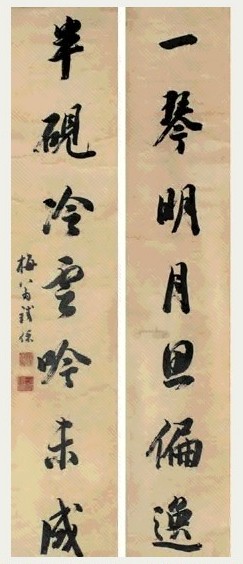 一琴明月思偏逸
半硯冷雲吟未成
梅鐵保